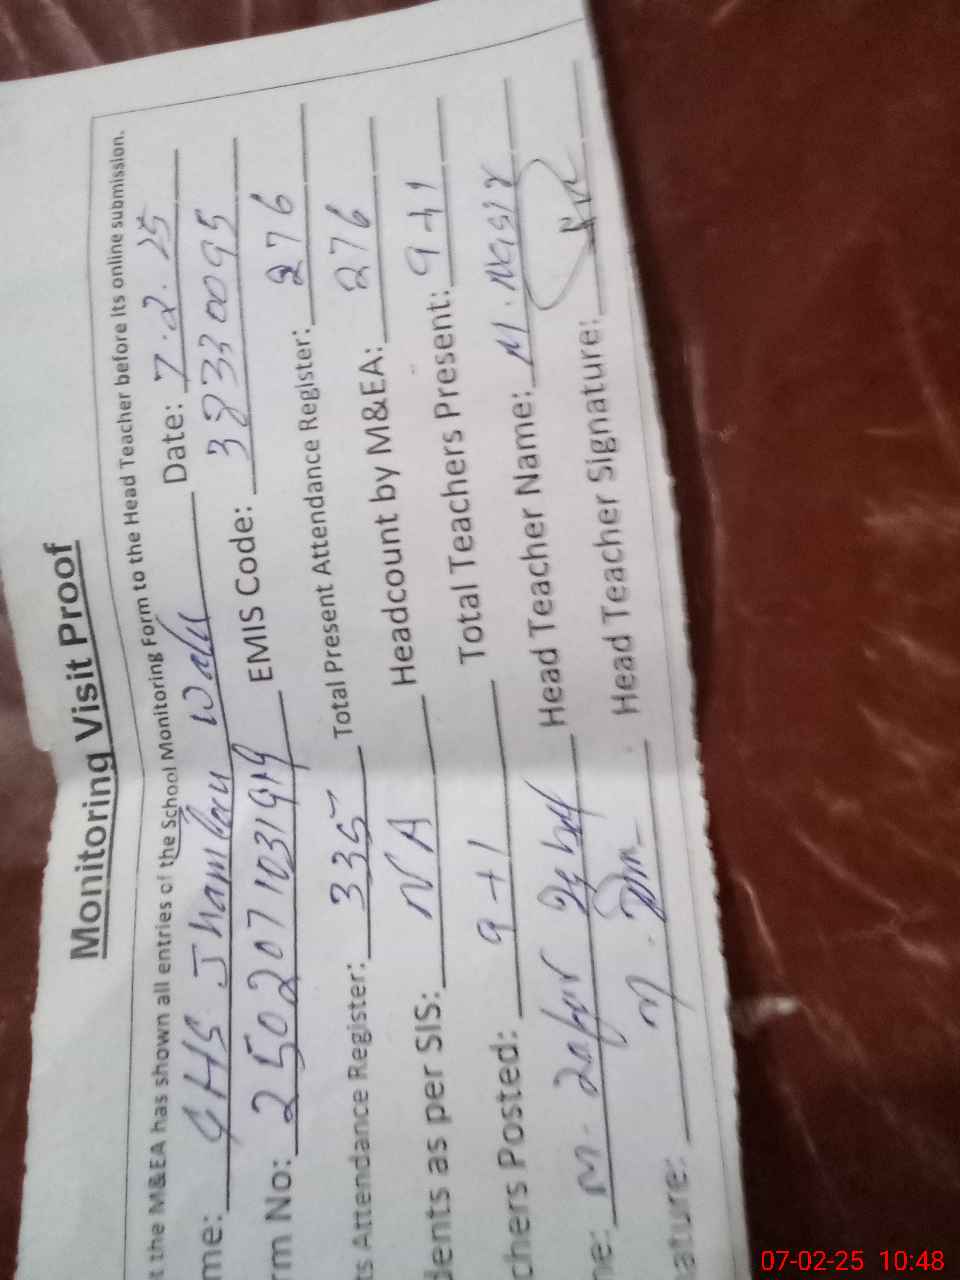 Monitoring Visit Proof
t the M&EA has shown all entries of the School Monitoring Form to the Head Teacher before its online submission.
me: GHS Jhamberu Wali Date: 7.2.25
rm No: EMIS Code: 38330095
ts Attendance Register: 335 Total Present Attendance Register: 276
dents as per SIS: NA Headcount by M&EA: 276
chers Posted: 9+1 Total Teachers Present: 9+1
ne: M. Zafar Head Teacher Name: M. Nasir
ature: Head Teacher Signature:
07-02-25 10:48